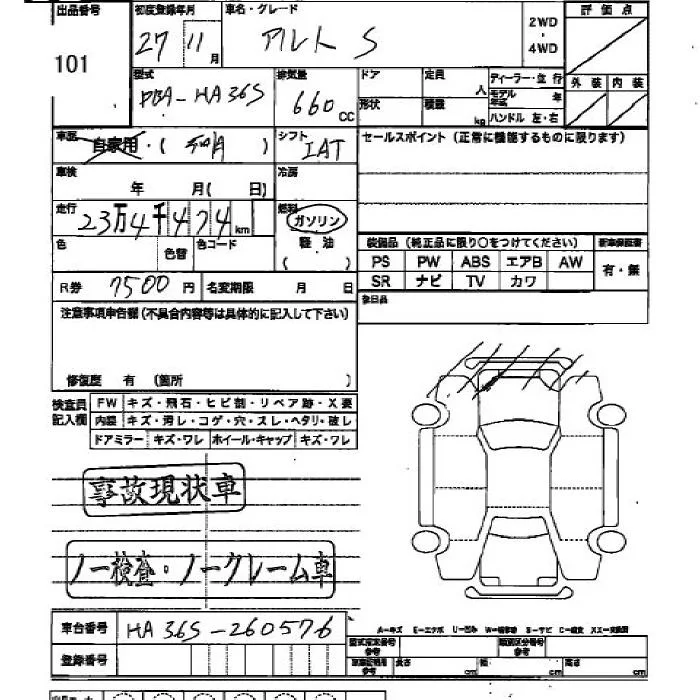 出品番号 初度登録年月 車名・グレード 2WD 評価点
101 27 11月 アルト S 4WD
型式 排気量 ドア 定員 人 ディーラー・並行 外装 内装
DBA-HA36S 660CC 形状 積載 kg モデル年式 年
ハンドル 左・右
車歴 自家用・( ) シフト IAT セールスポイント(正常に機能するものに限ります)
車検 年 月(日) 冷房
走行 23万4千474km 燃料 ガソリン
色 色替 色コード 軽油 装備品(純正品に限り○をつけてください) 新車保証書
( ) PS PW ABS エアB AW 有・無
R券 7500円 名変期限 月 日 SR ナビ TV カワ
注意事項申告欄(不具合内容等は具体的に記入して下さい)
修復歴 有 (箇所 )
検査員記入欄 FW キズ・飛石・ヒビ割・リペア跡・X要
内装 キズ・汚レ・コゲ・穴・スレ・ヘタリ・破レ
ドアミラー キズ・ワレ ホイール・キャップ キズ・ワレ
事故現状車
ノー検査・ノークレーム車
車台番号 HA36S-260576
登録番号
型式指定番号 参考 類別区分番号 参考
長さ cm 幅 cm 高さ cm